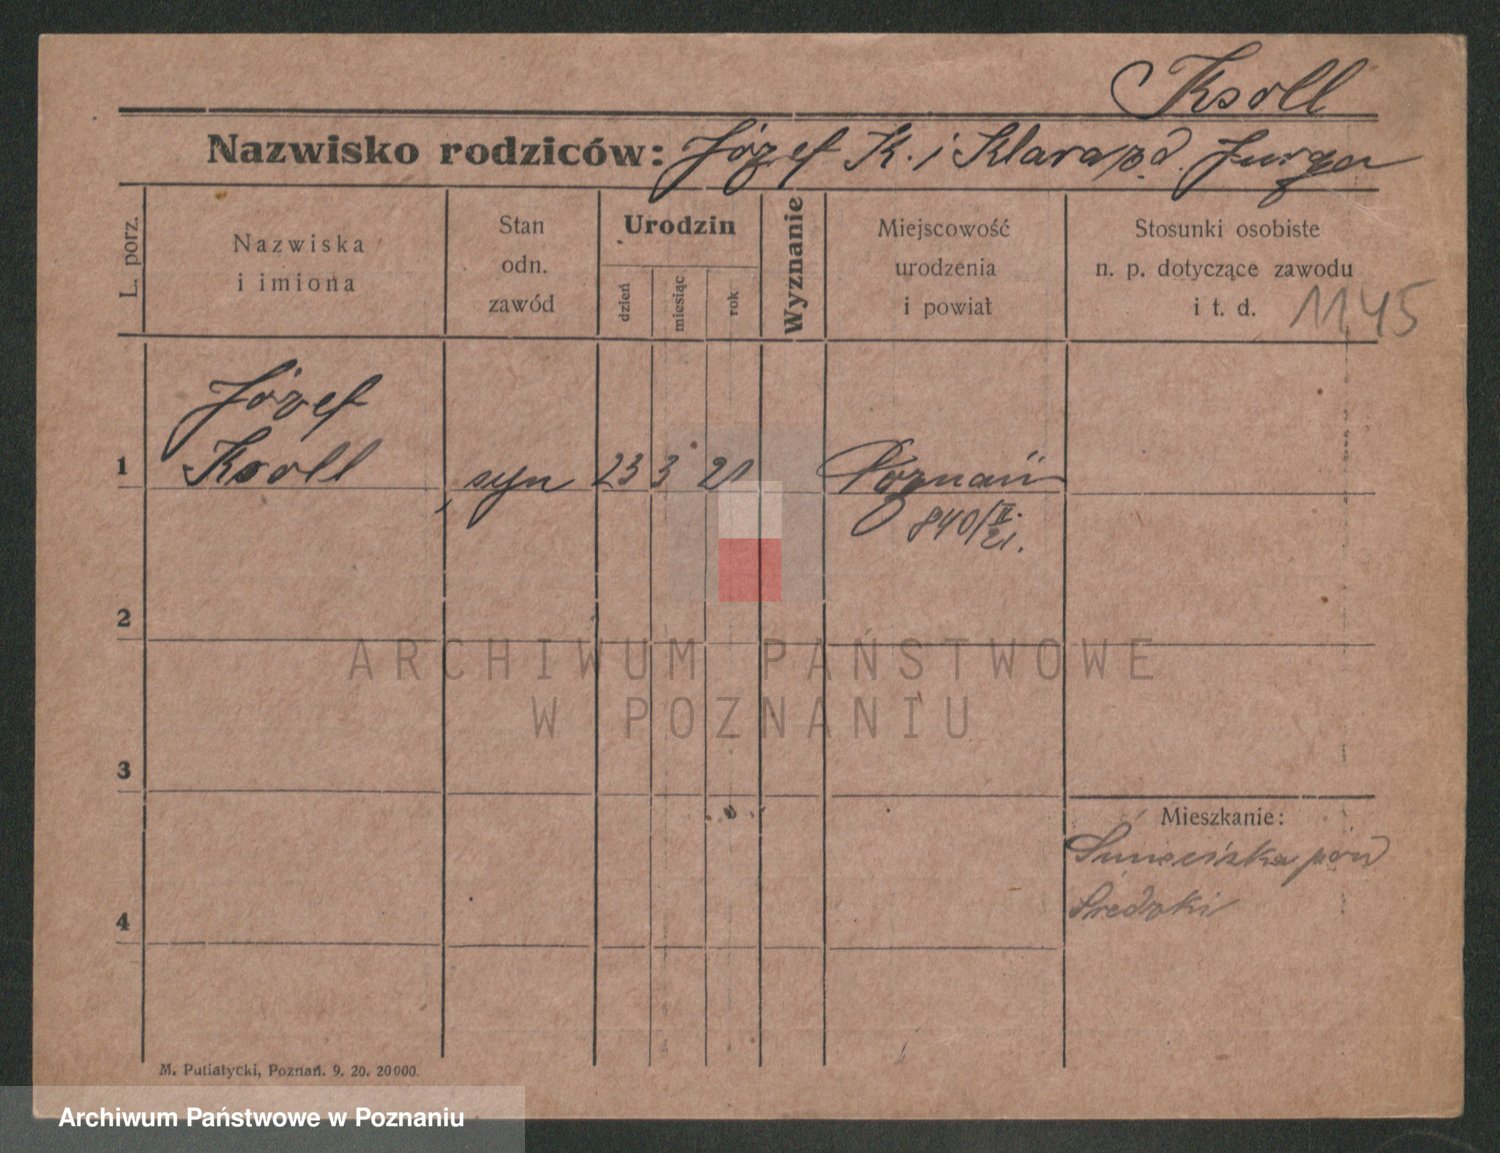 Ksoll
Nazwisko rodziców: Józef K. i Klara zd.
L. porz.
Nazwiska
i imiona
Stan
odn.
zawód
Urodzin
dzień
miesiąc
rok
Wyznanie
Miejscowość
urodzenia
i powiat
Stosunki osobiste
n. p. dotyczące zawodu
i t. d.
1145
Józef
1 Ksoll syn 23 3 21 Poznań
840/II.
21.
2
ARCHIWUM PAŃSTWOWE
W POZNANIU
3
Mieszkanie:
pow
Średzki
4
M. Putiatycki, Poznań. 9. 20. 20000.
Archiwum Państwowe w Poznaniu